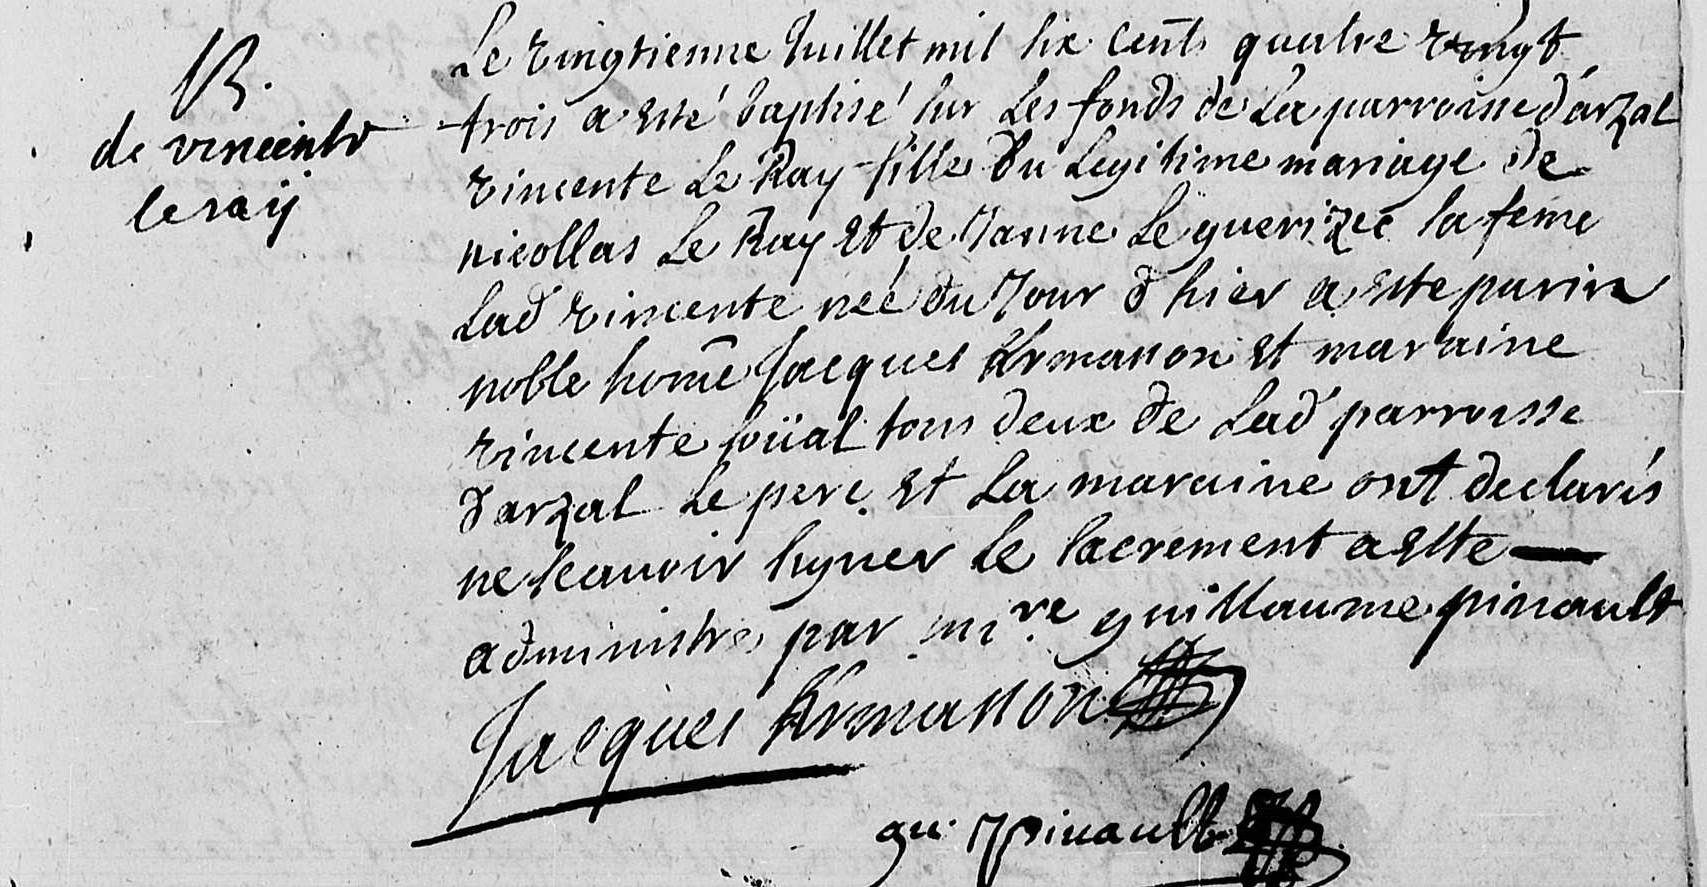 B.
de vincente
le raÿ
Le vingtienne Juillet mil six cents quatre vingt
trois a esté baptisé sur Les fonds de La parroisse d'arzal
vincente Le Ray fille Du Legitime mariage de
nicollas Le Ray Et de Janne Le guerizec sa feme
Lad vincente neé du Jour d hier a este parin
noble home Jacques Krmasson Et maraine
vincente loüal tous deux de Lad parroisse
d'arzal Le pere Et La maraine ont declarés
ne scauoir signer Le sacrement a este
administré par mire guillaume pinault
Jacques Krmasson
gu: pinault